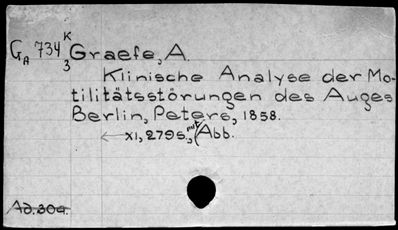 G_A 734 K/3 Graefe, A.
Klinische Analyse der Mo-
tilitätsstörungen des Auges
Berlin, Peters, 1858.
XI, 279 S., mit Abb.
Ad. 30a.